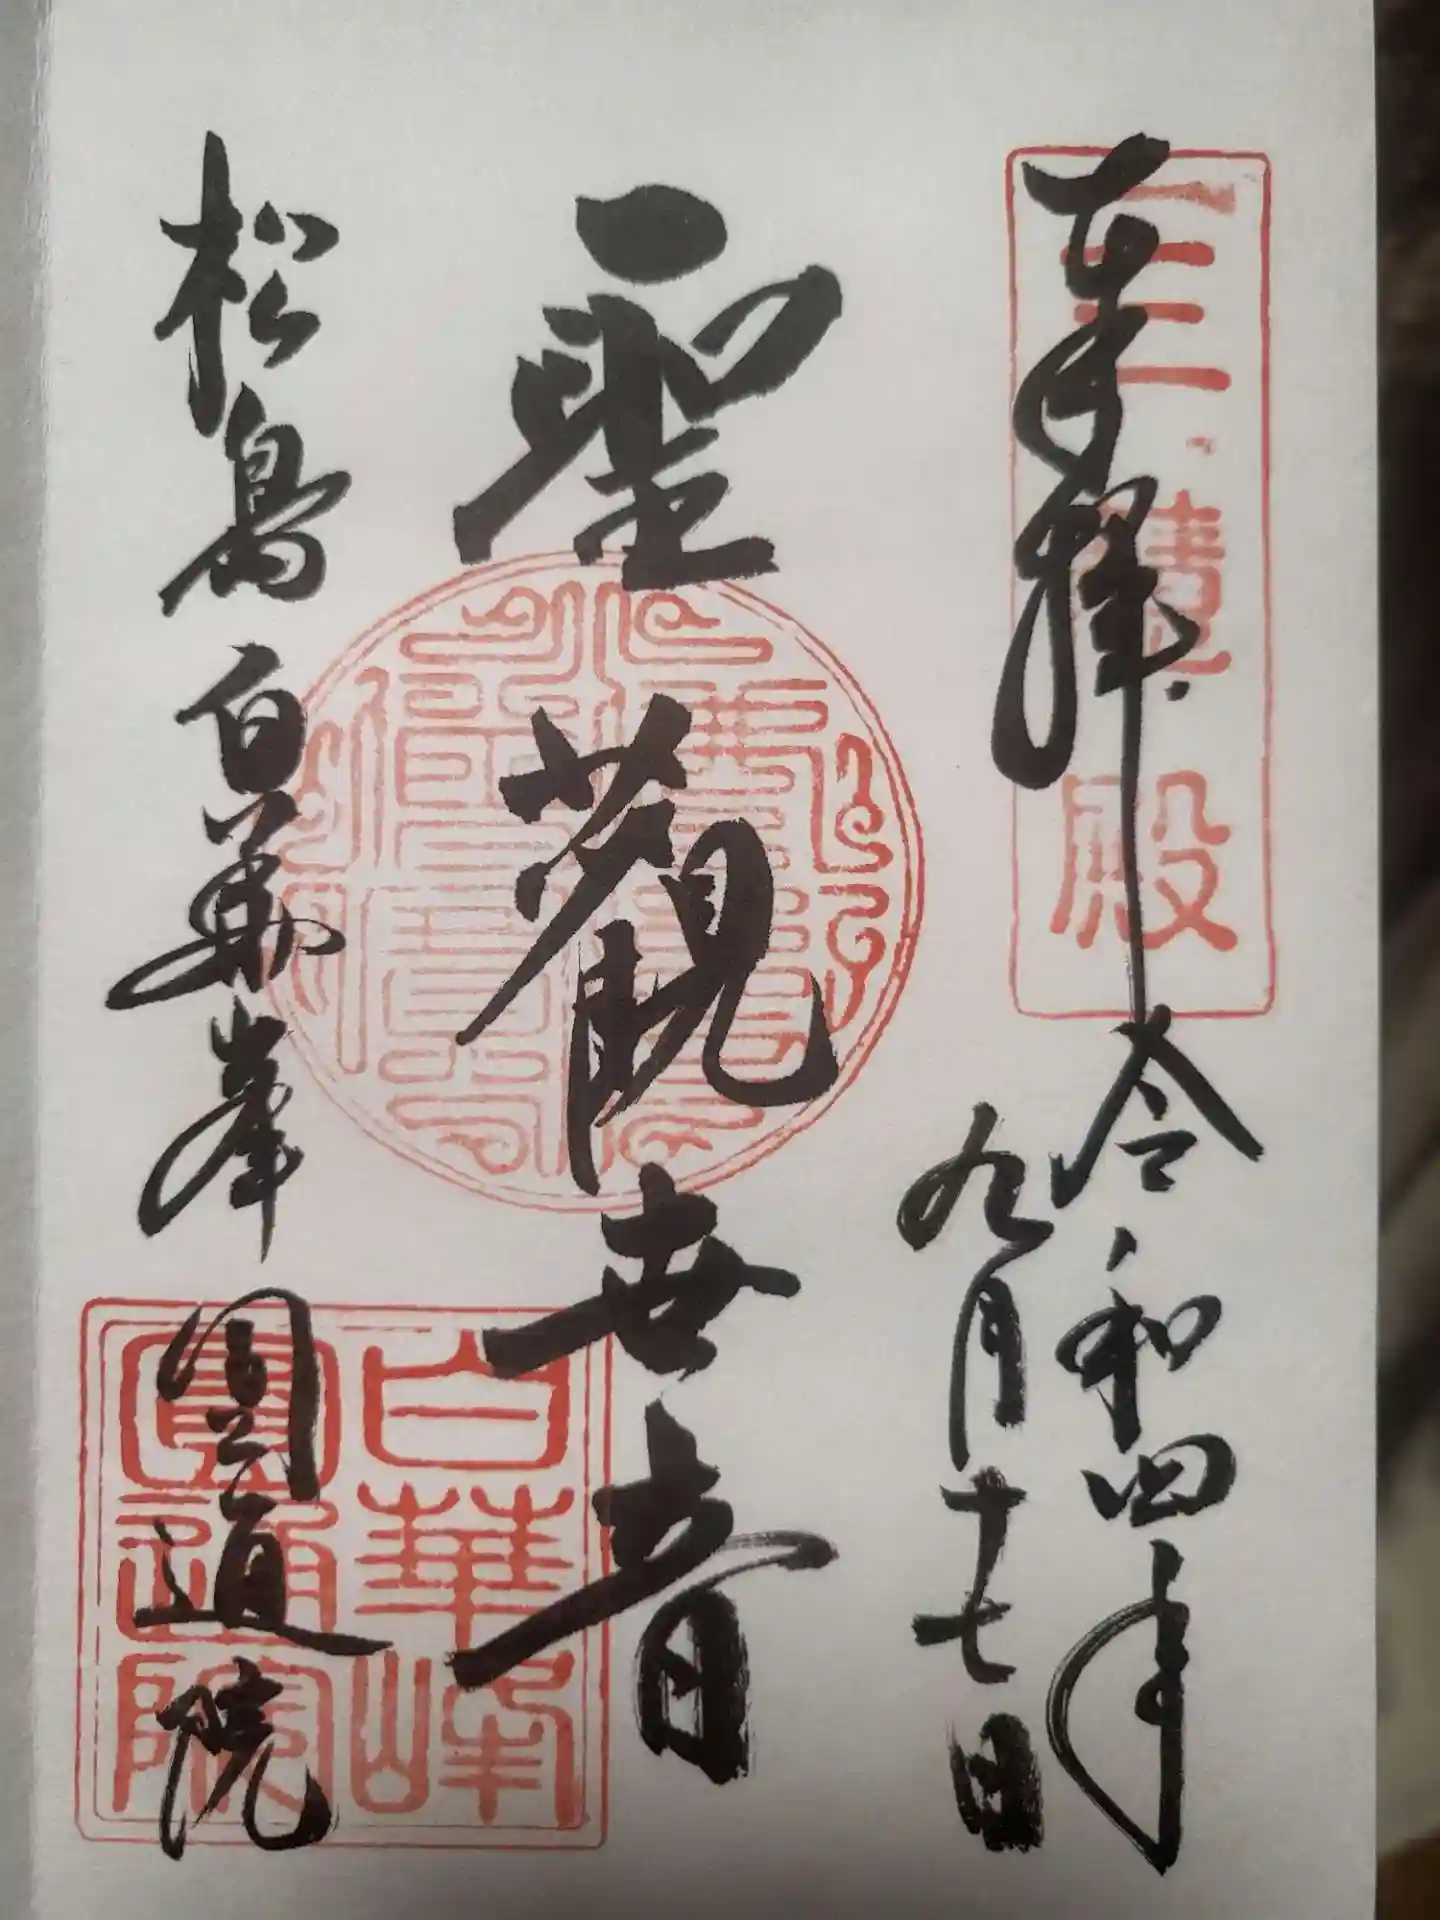 奉拝
三慧殿
令和四年
九月十七日
聖観世音
松島白華峯圓通院
白華峰
圓通院